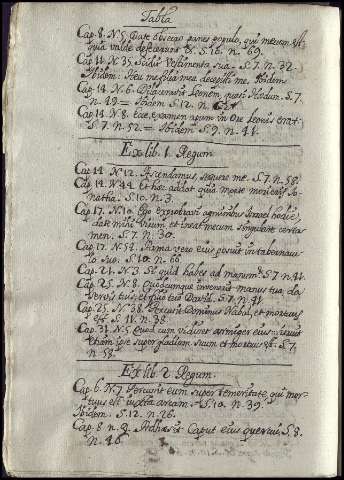 Tabla
Cap. 8. N. 5 Date obsecro panes populo, qui mecum est
quia valde defecerunt S. 16. n. 69.
Cap. 11. N. 35. Scidit Vestimenta sua. S. 7. n. 32.
Ibidem: Heu me filia mea decepisti me Ibidem
Cap. 14. N. 6. Dilaceravit Leonem, quasi Hedum. S. 7.
n. 49 = Ibidem S. 12. n.
Cap. 14. N. 8. Ecce examen apum in Ore Leonis erat.
S. 7. n. 52. = Ibidem S. 9. n. 41.
Ex lib. 1. Regum
Cap. 14. N. 12. Ascendamus sequere me. S. 7. n. 58.
Cap. 14. N. 44. Et hoc addat quia morte morieris Jo-
natha. S. 10. n. 3.
Cap. 17. N. 10. Ego exprobavi agminibus Israel hodie,
date mihi Virum et ineat mecum singulare certa-
men. S. 7. n. 30.
Cap. 17. N. 54. Arma vero eius posuit in tabernacu-
lo suo. S. 10. n. 66
Cap. 21. N. 3. Si quid habes ad manum S. 7. n. 41.
Cap. 25. N. 8. Quodcumque invenerit manus tua, da
servis tuis, et filio tuo David. S. 7. n. 41
Cap. 25. N. 38. Percusit Dominus Nabal, et mortuus
est S. 11. n. 38.
Cap. 31. N. 5. Quod cum vidisset armiger eius irruit
etiam ipse super gladium suum et mortuus est. S. 7.
n. 58.
Ex lib. 2. Regum.
Cap. 6. N. 7. Percusit eum super temeritate, qui mor-
tuus est iuxta arcam. S. 10. n. 39.
Ibidem: S. 12. n. 26.
Cap. 8 n. 9. Adhæsit Caput eius quercui S. 8.
n. 46.